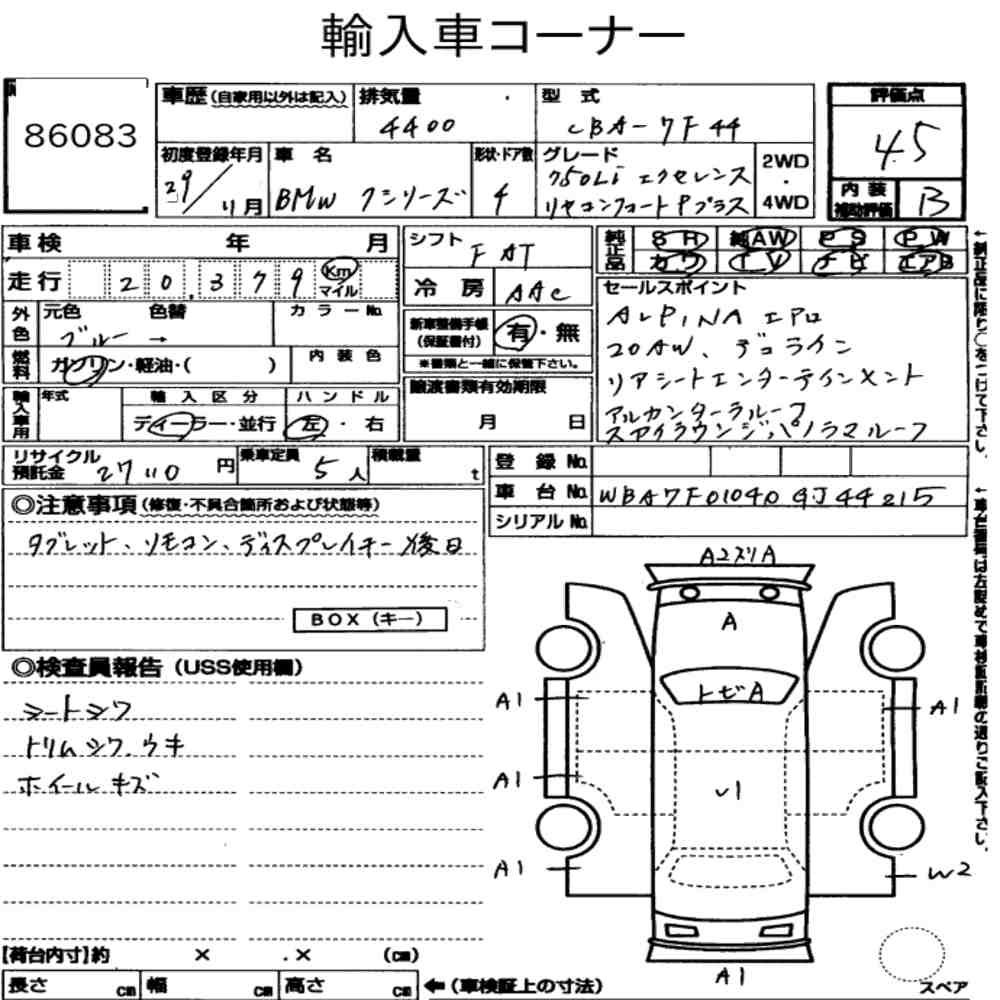 輸入車コーナー
86083
車歴(自家用以外は記入)
排気量
4400
型式
CBA-7F44
評価点
4.5
初度登録年月
29/11月
車名
BMW 7シリーズ
形状・ドア数
4
グレード
750Li エクセレンス
リヤコンフォートPプラス
2WD
・
4WD
内装
補助評価
B
車検 年 月
走行 20.379 Km
マイル
シフト
FAT
冷房
AAC
純正品
SR 純AW PS PW
カワ TV ナビ エアB
外色
元色 色替
ブルー →
カラーNo.
燃料
ガソリン・軽油・( )
内装色
新車整備手帳
(保証書付)
有・無
※書類と一緒に保管下さい。
セールスポイント
ALPINA エアロ
20AW、デコライン
リアシートエンターテインメント
アルカンターラルーフ
スカイラウンジ、パノラマルーフ
輸入車用
年式
輸入区分
ディーラー・並行
ハンドル
左・右
譲渡書類有効期限
月 日
リサイクル
預託金 27110 円
乗車定員 5人
積載量 t
登録No.
車台No. WBA7F01040GJ44215
シリアルNo.
◎注意事項(修復・不具合箇所および状態等)
タブレット、リモコン、ディスプレイキー後日
BOX(キー)
◎検査員報告(USS使用欄)
シートシワ
トリムシワ、ウキ
ホイールキズ
A2スリA
A
トビA
A1
A1
A1
U1
A1
W2
A1
スペア
【荷台内寸】約 × . × (cm)
長さ cm 幅 cm 高さ cm
←(車検証上の寸法)
←純正品に限り○をつけて下さい。